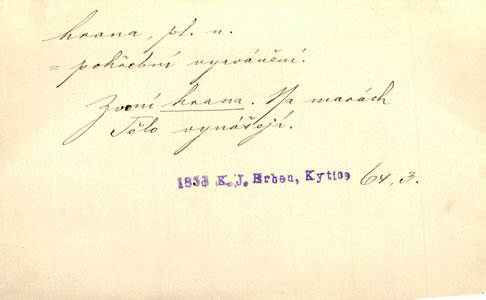 hrana, pl. n.
= pohřební vyzvánění.
Zvoní hrana. Na marách
Tělo vynášejí.
1853 K. J. Erben, Kytice 64, 3.